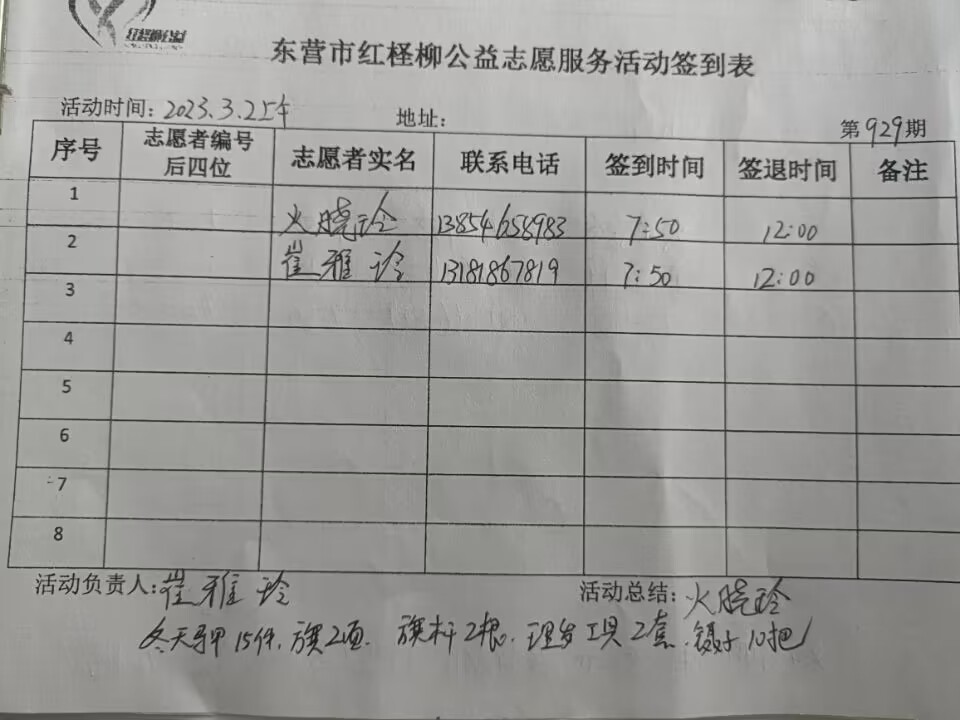 红柽柳公益
东营市红柽柳公益志愿服务活动签到表
活动时间：2023.3.2上午 地址：
第929期
序号 志愿者编号后四位 志愿者实名 联系电话 签到时间 签退时间 备注
1 火晓玲 13854658983 7:50 12:00
2 崔雅玲 13181867819 7:50 12:00
3
4
5
6
7
8
活动负责人：崔雅玲 活动总结：火晓玲
冬天马甲15件，旗2面，旗杆2根，理发工具2套，镊子10把